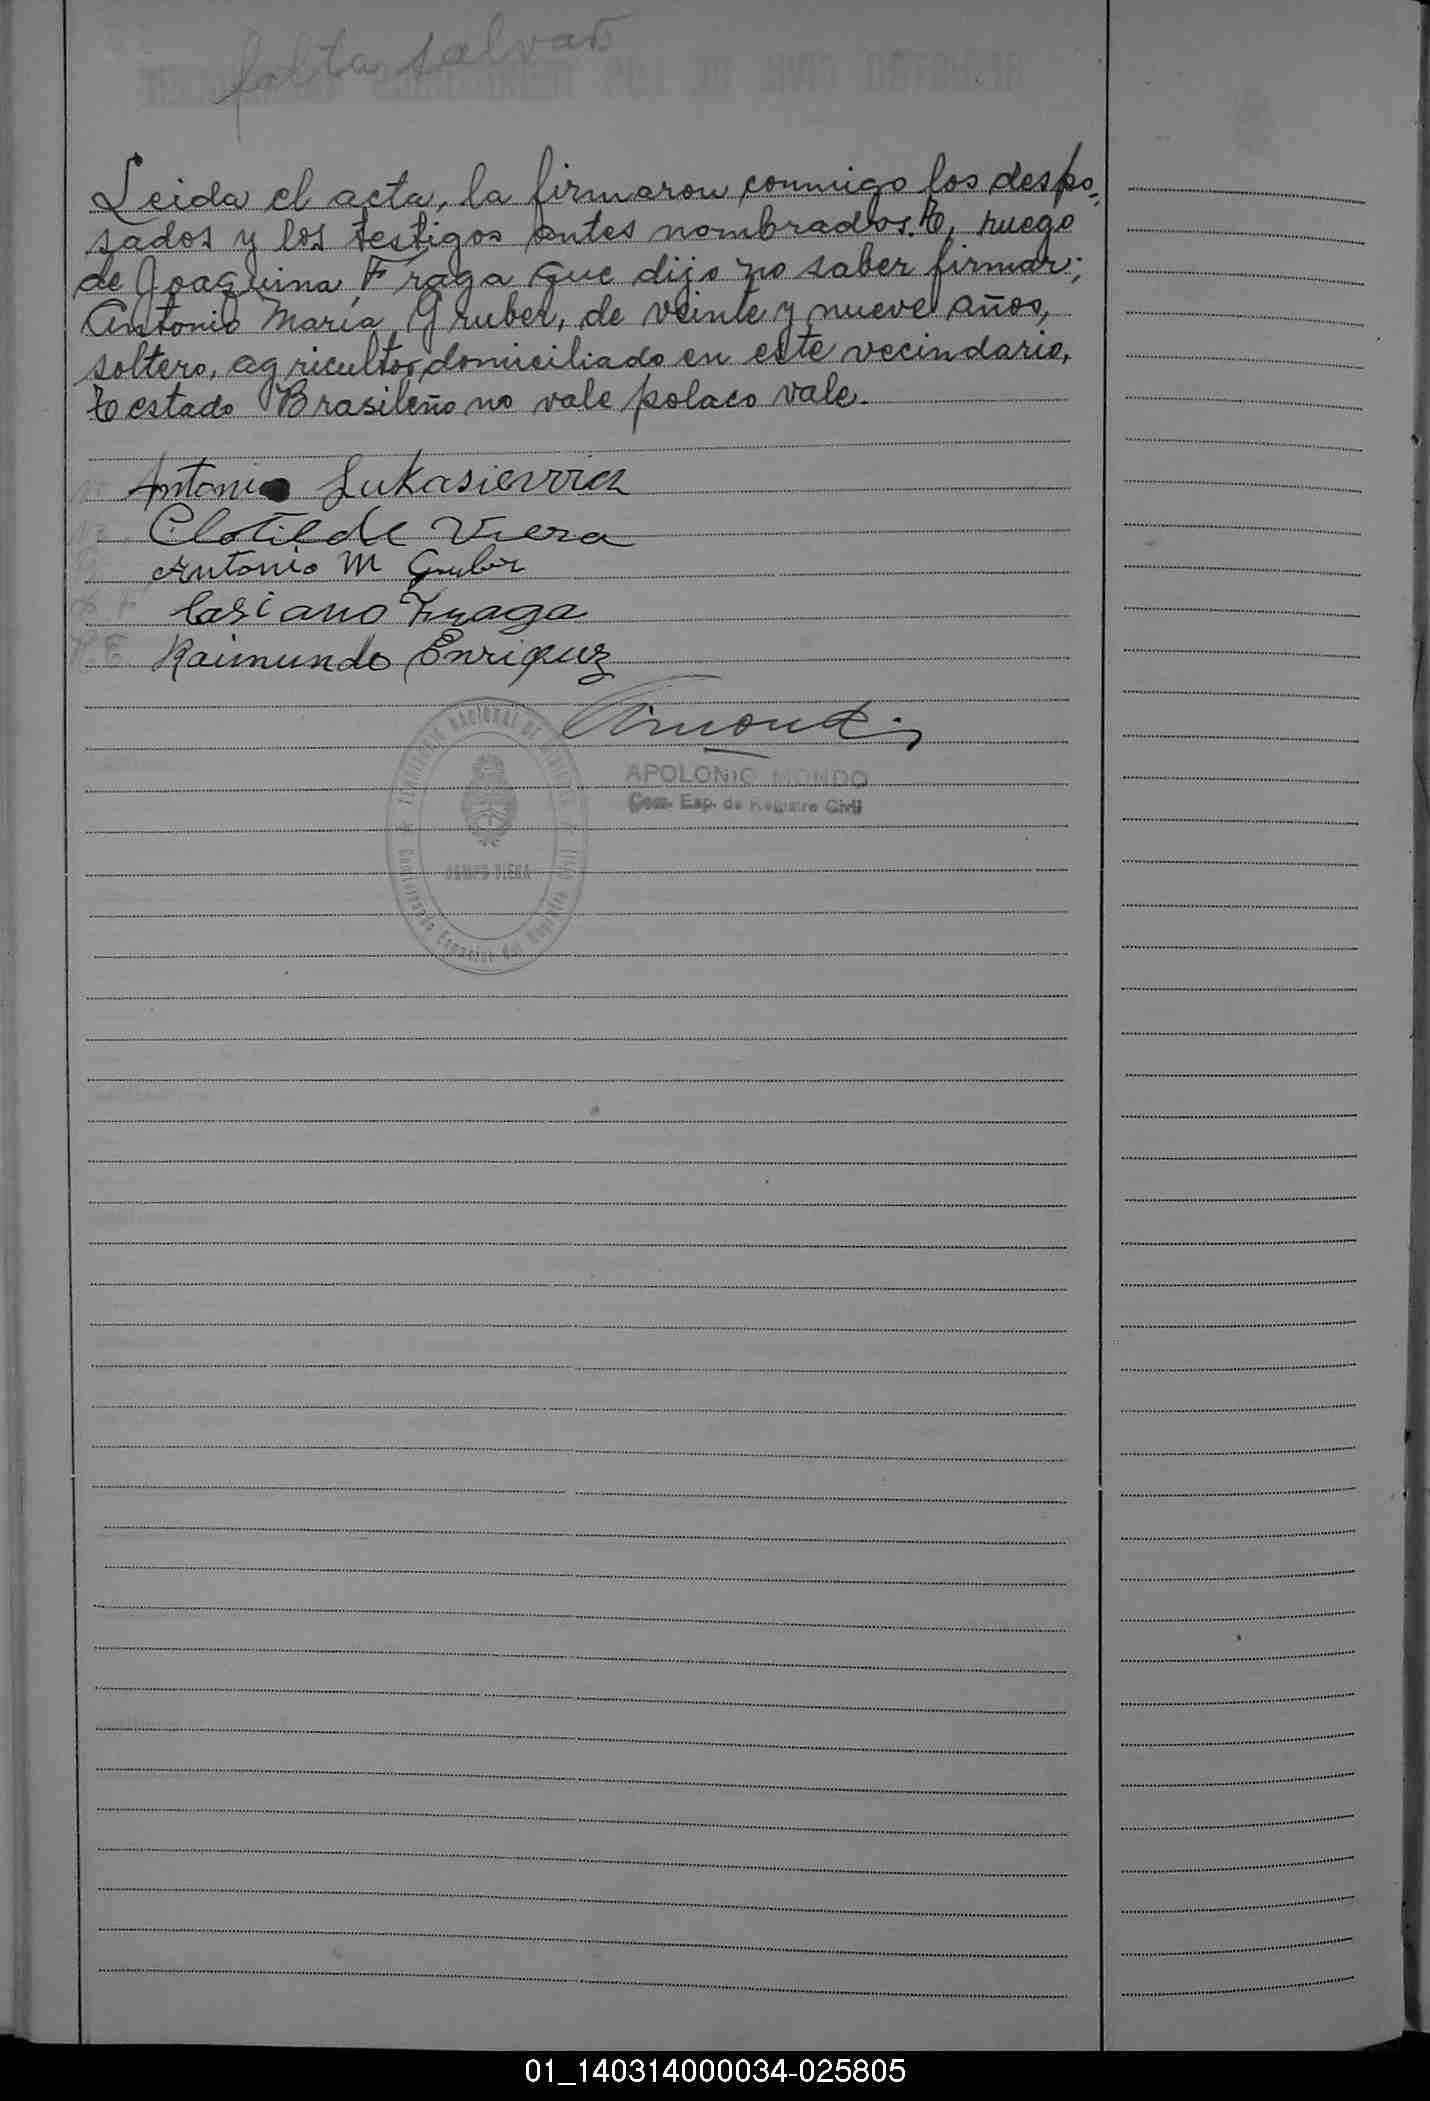 falta salvar
Leida el acta, la firmaron conmigo los despo-
sados y los testigos antes nombrados. A, ruego
de Joaquina Fraga que dijo no saber firmar;
Antonio María Gruber, de veinte y nueve años,
soltero, agricultor, domiciliado en este vecindario,
testado Brasileño no vale polaco vale.
Antonio Lukasiewicz
Clotilde Viera
Antonio M Gruber
Casiano Fraga
Raimundo Enriquez
APOLONIO MONDO
Com. Esp. de Registro Civil
CAMPO VIERA
01_140314000034-025805